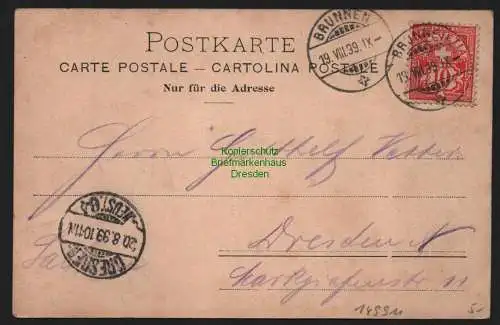 BRUNNEN
19.VIII.99.IX–
BRUNNEN
19.VIII.99.IX–
10
POSTKARTE
CARTE POSTALE – CARTOLINA POSTALE
Nur für die Adresse
Kopierschutz
Briefmarkenhaus
Dresden
Herrn Gotthelf Vetter
NEUST.
20.8.99.10-11N.
DRESDEN
Dresden N
Markgrafenstr 11
5-